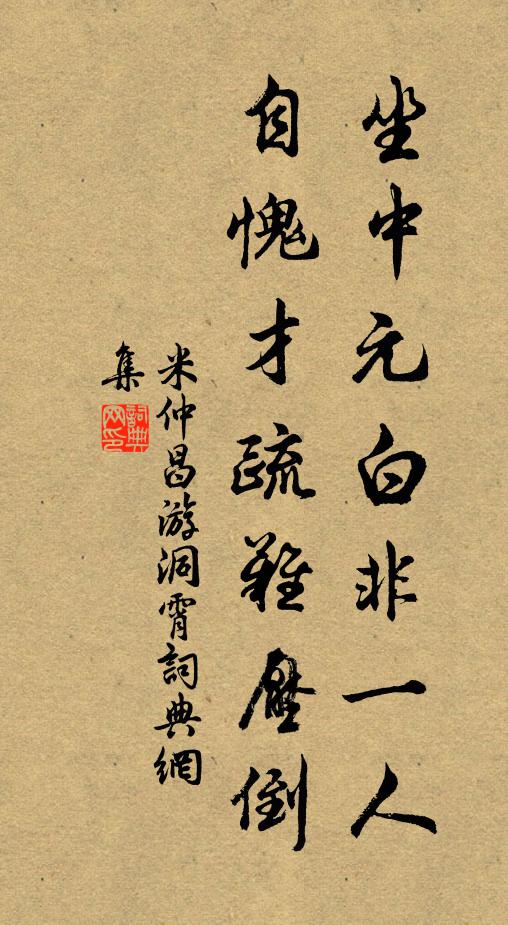 坐中元白非一人
自愧才疏難壓倒
米仲昌游洞霄詞典網
集
詞典網印